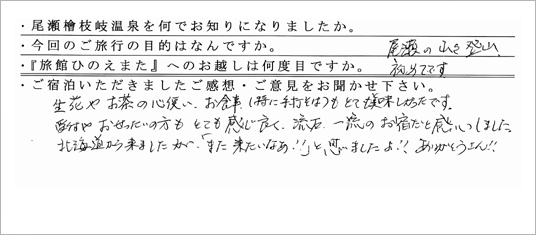 ・尾瀬檜枝岐温泉を何でお知りになりましたか。
・今回のご旅行の目的はなんですか。 尾瀬の山を登山
・『旅館ひのえまた』へのお越しは何度目ですか。 初めてです
・ご宿泊いただきましたご感想・ご意見をお聞かせ下さい。
生花やお茶の心使い、お食事(特に手打そば)もとても美味しかったです。
おせったいの方もとても感じ良く、流石、一流のお宿だと感心しました。
北海道から来ましたが、「また来たいなあ!!」と思いましたよ!!ありがとうさん!!